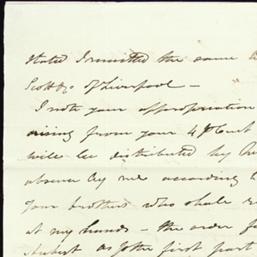 stated I remitted the same
Scott & Co of Liverpool —
I note your appropriation
arising from your 4 P Cent
will be distributed by
absence by me according
your brothers who shale
at my hands — the order
as for the first part